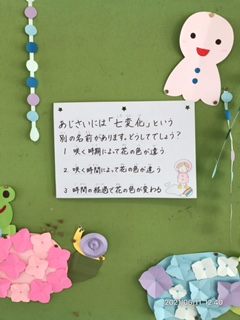 あじさいには「七変化」という
別の名前があります。どうしてでしょう？
1 咲く時期によって花の色が違う
2 咲く時間によって花の色が違う
3 時間の経過で花の色が変わる